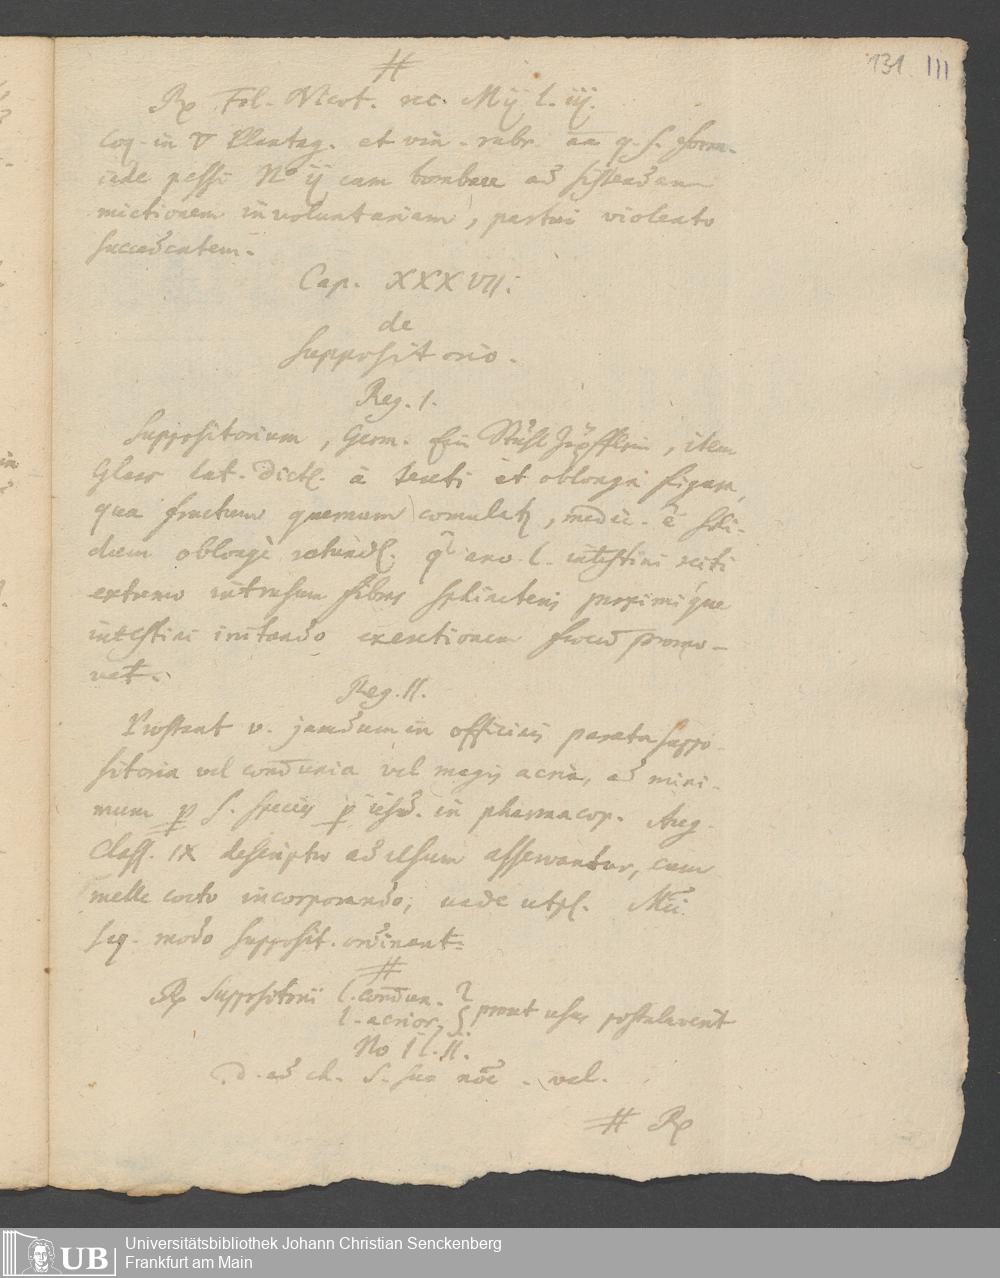 131 111
#
Rp Fol. Nicot. rec. Mij l. iij.
coq. in ▽ Plantag. et vin. rubr. aa q. s. form.
inde pessi No ij cum bombace ad sistendam
mictionem involuntariam, partui violento
succedentem.
Cap. XXXVII.
de
Suppositorio.
Reg. I.
Suppositorium, Germ. Ein Stuhl Zäpfflein, item
Glans lat. dict. à tereti et oblonga figura,
qua fructum quernum, medic. ê soli-
dum oblongè rotund. ano l. intestini recti
extremo intrusum fibras sphincteris proximique
intestini irritando excretionem promo-
vet.
Reg. II.
Prostant v. jamdum in officinis parata suppo-
sitoria vel communia vel magis acria, ad mini-
mum p. s. species p in pharmacop. Aug.
Class. IX descriptae ad usum asservantur, cum
melle cocto incorporando; unde
seq. modo supposit. ordinant=
#
Rp Suppositorii l. commun. l. acrior. } prout usus postulaverit
No I l. II.
D. ad ch. S. suo nôe. vel.
# Rp
UB
Universitätsbibliothek Johann Christian Senckenberg
Frankfurt am Main